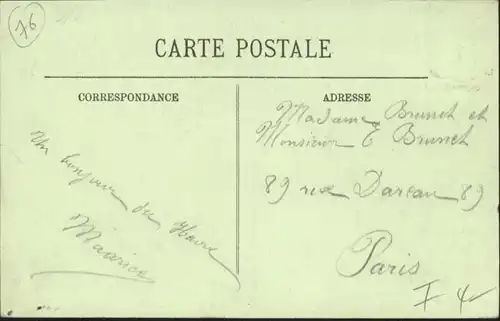 76
CARTE POSTALE
CORRESPONDANCE
ADRESSE
Un bonjour du Havre
Maurice
Madame Brunet et
Monsieur E Brunet
89 rue Dareau 89
Paris